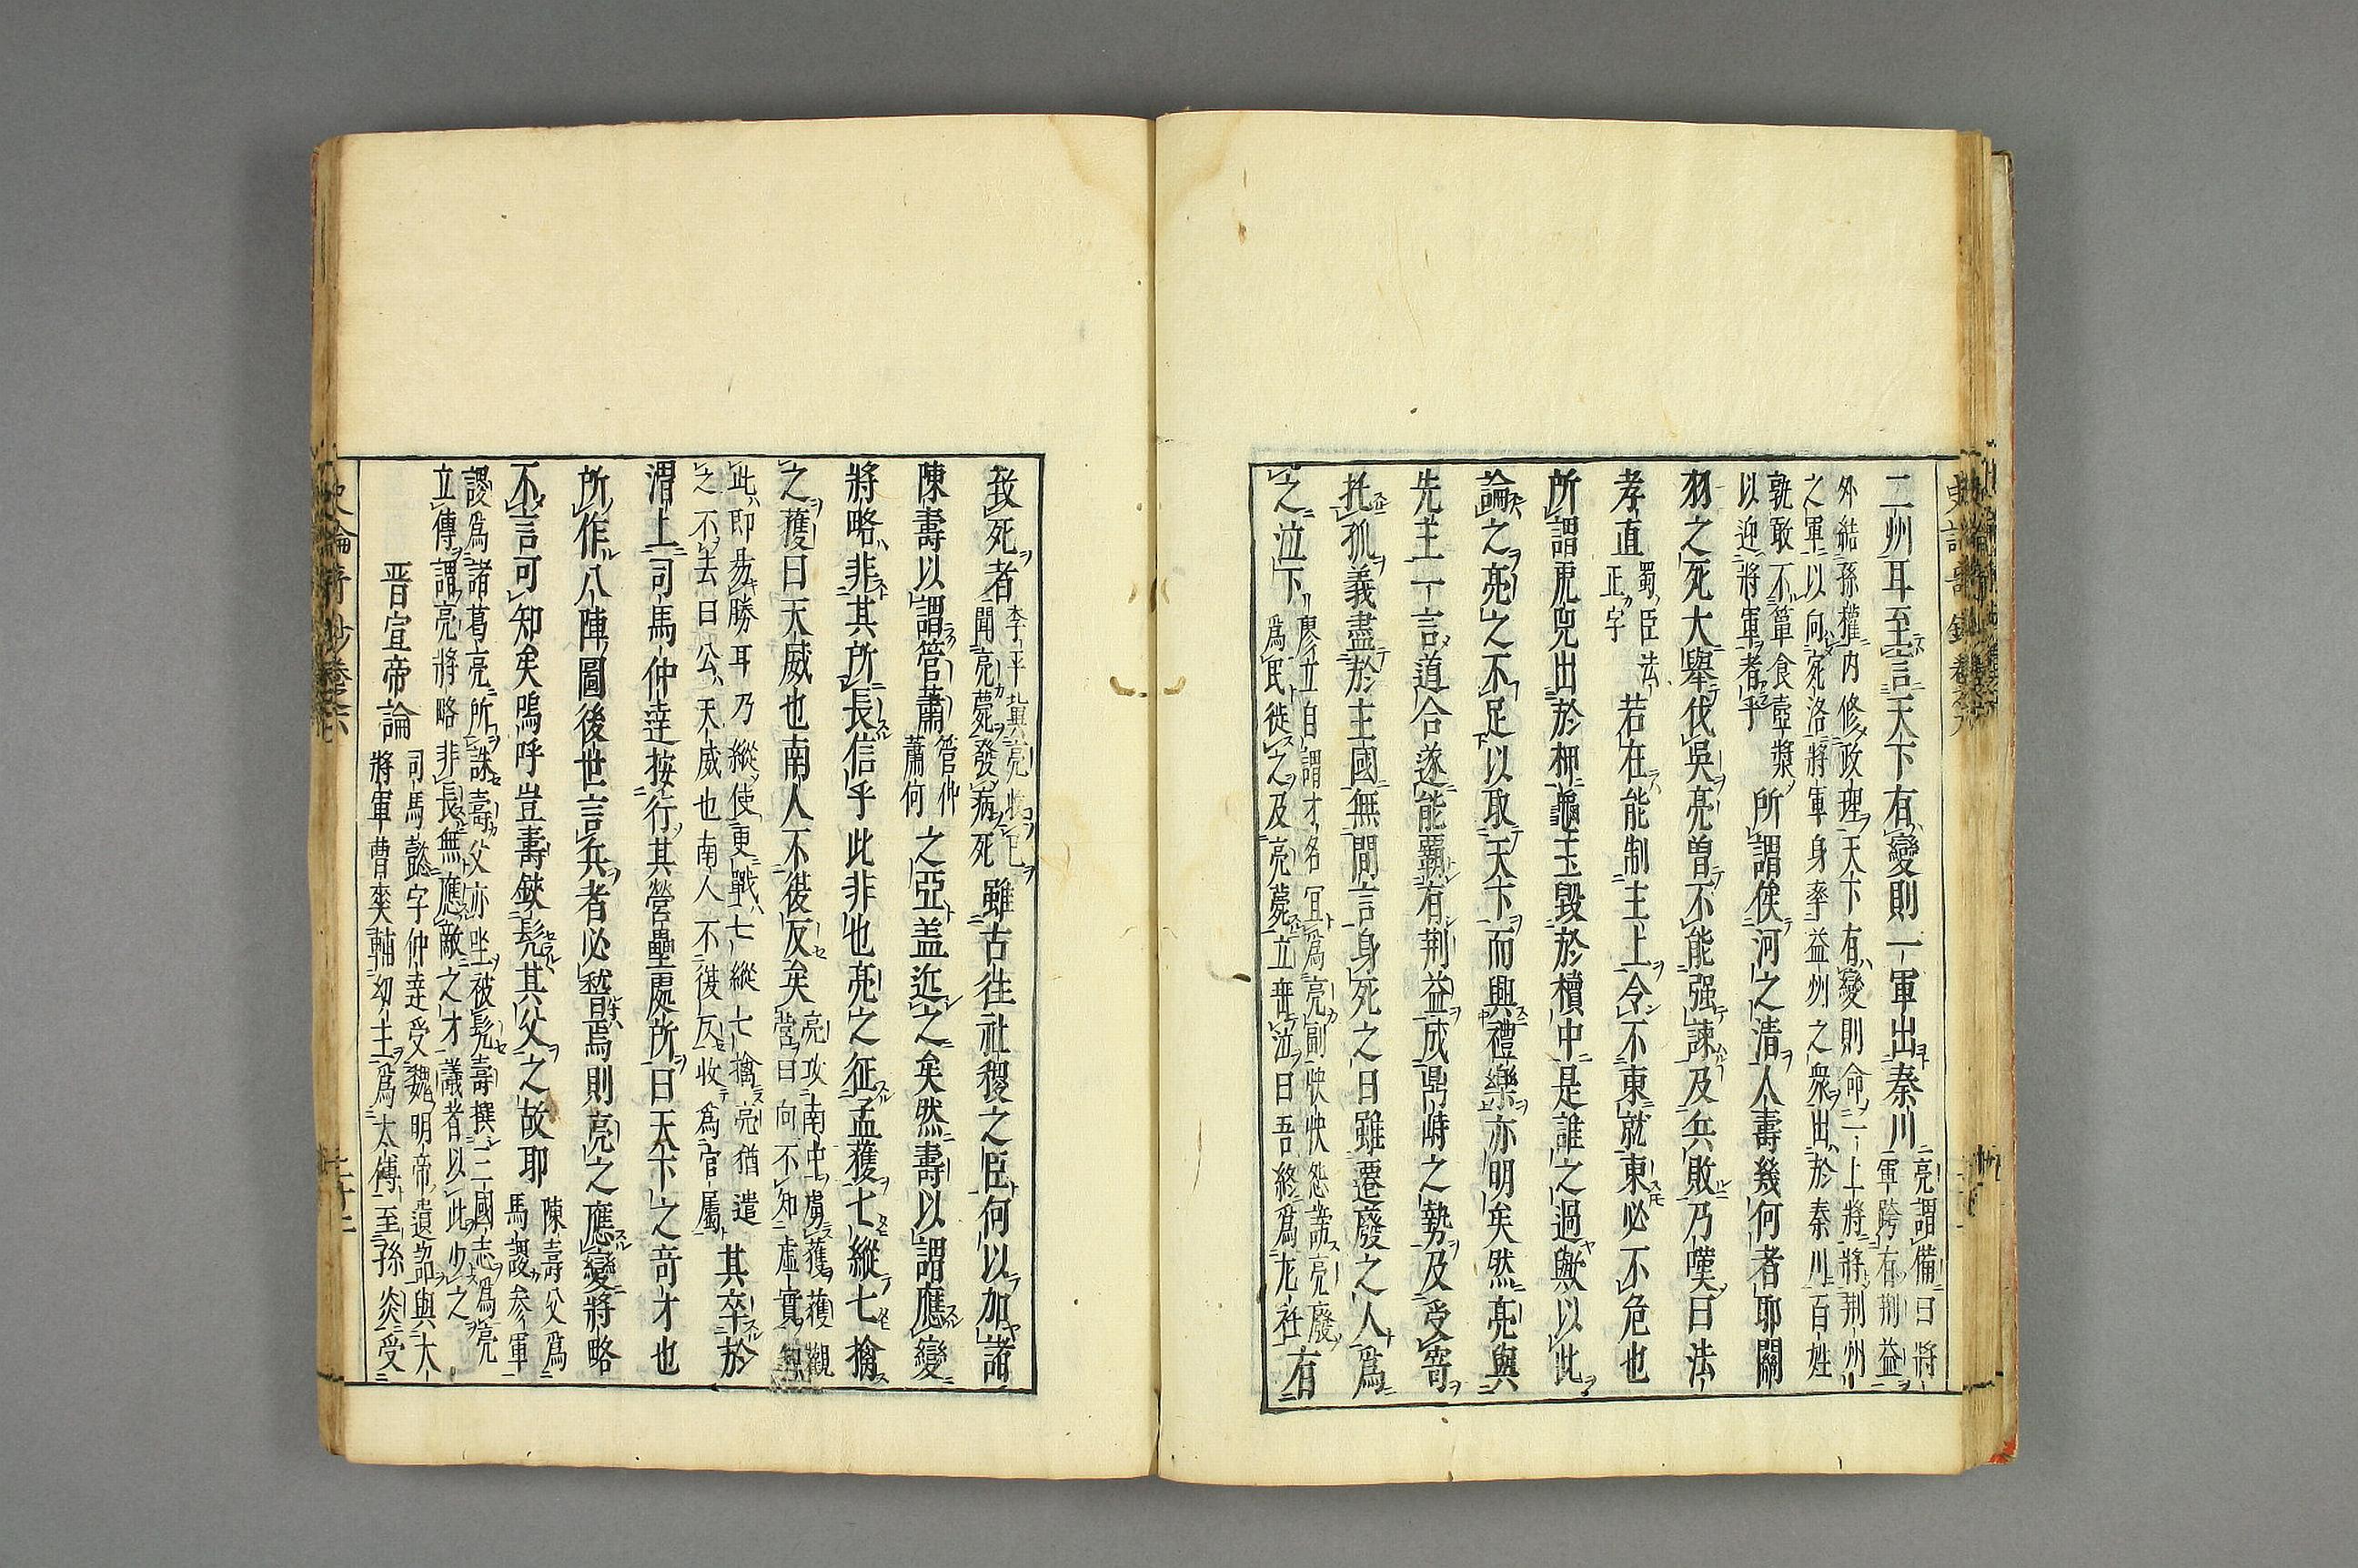 二州耳至言天下有變則一軍出秦川亮謂備曰將
軍跨有荊益
外結孫權内修政理天下有變則命一上將將荊州
之軍以向宛洛將軍身率益州之衆出於秦川百姓
孰敢不簞食壺漿
以迎將軍者乎所謂俟河之清人壽幾何者耶關
羽之死大舉伐吳亮曽不能强諫及兵敗乃嘆曰法
孝直蜀臣法
正字若在能制主上令不東就東必不危也
所謂虎兕出於柙龜玉毀於櫝中是誰之過歟以此
論之亮之不足以取天下而與禮樂亦明矣然亮與
先主一言道合遂能覇有荆益成鼎峙之勢及受寄
托孤義盡於主國無間言身死之日雖遷廢之人爲
之泣下廖立自謂才名宜爲亮副怏怏怨謗亮廢
爲民徙之及亮薨立垂泣曰吾終爲左衽有
致死者李平冀亮收己
聞亮薨發病死雖古往社稷之臣何以加諸
陳壽以謂管蕭管仲
蕭何之亞盖近之矣然壽以謂應變
將略非其所長信乎此非也亮之征孟獲七縱七擒
之獲曰天威也南人不復反矣亮攻南中虜獲獲觀
營曰向不知虛實
此即易勝耳乃縱使更戰七縱七擒亮猶遣
之不去曰公天威也南人不復反收爲官屬其卒於
渭上司馬仲達按行其營壘處所曰天下之奇才也
所作八陣圖後世言兵者必稽焉則亮之應變將略
不言可知矣嗚呼豈壽鋏髡其父之故耶陳壽父爲
馬謖參軍
謖爲諸葛亮所誅壽父亦坐被髡壽撰三國志爲亮
立傳謂亮將略非長無應敵之才議者以此少之
晋宣帝論司馬懿字仲達受魏明帝遺詔與大
將軍曹爽輔幼主爲太傅至孫炎受